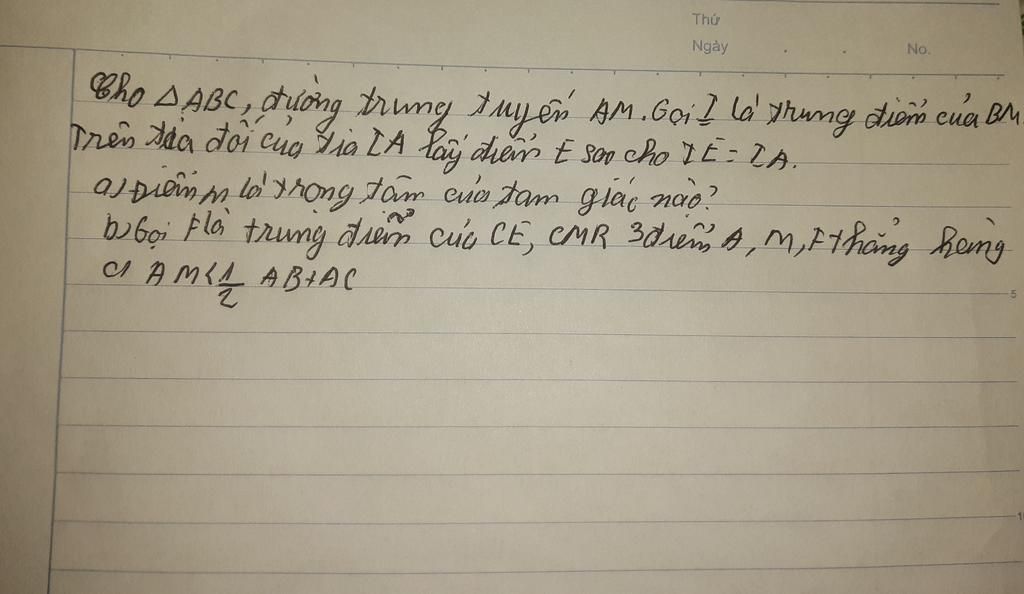 Thứ
Ngày . . No.
Cho △ABC, đường trung tuyến AM. Gọi I là trung điểm của BM.
Trên tia đối của tia IA lấy điểm E sao cho IE = IA.
a) Điểm M là trọng tâm của tam giác nào?
b) Gọi F là trung điểm của CE, CMR 3 điểm A, M, F thẳng hàng
c) AM < 1/2 AB + AC
5
1